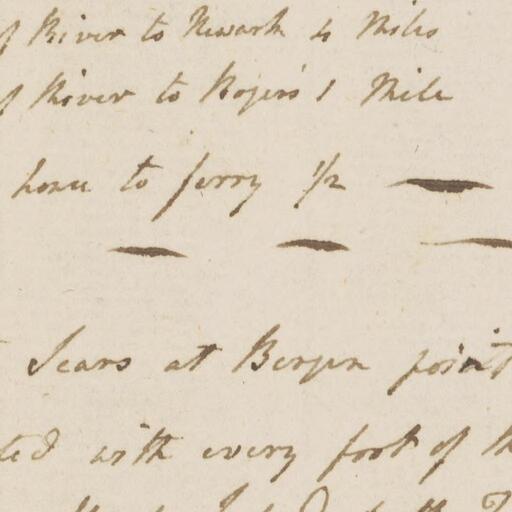 of River to Newark 4 Miles
of River to Rogers 1 Mile
home to ferry 1/2
Sears at Bergen point
ted with every foot of th